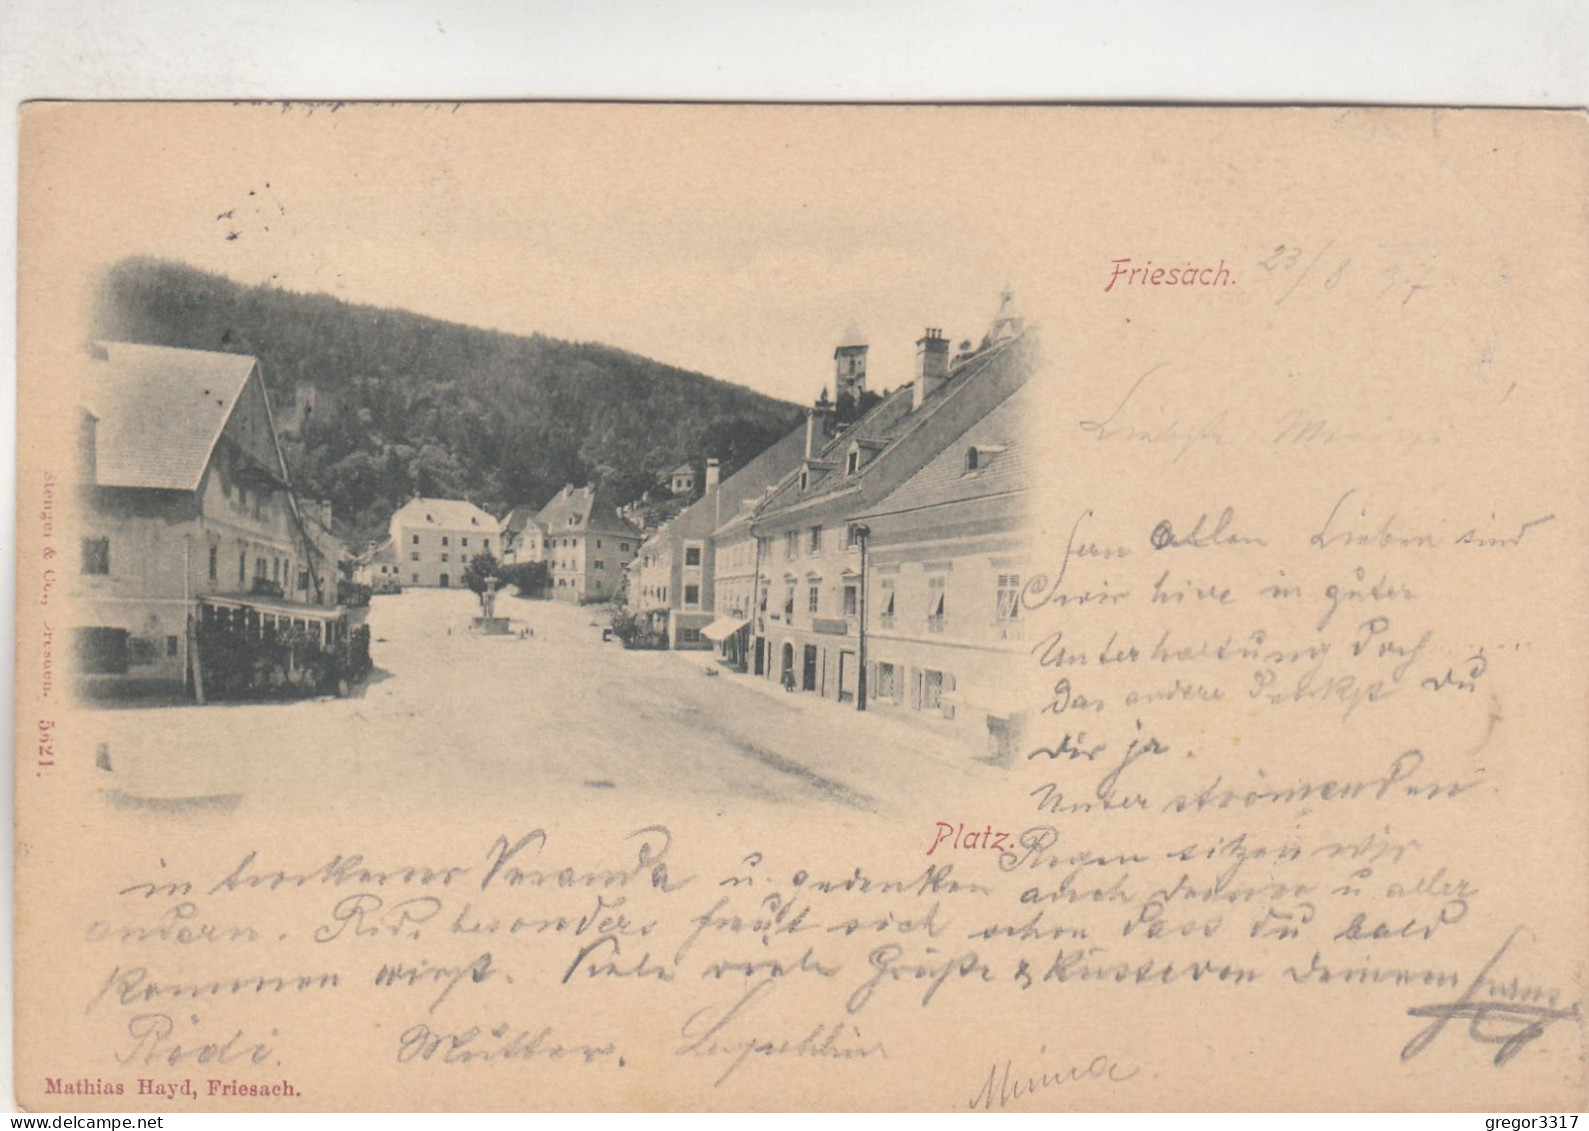 Friesach. 23/8 97
Liebste Minna!
fern allen Lieben sind
wir hier in guter
Unterhaltung doch ....
das andere du
dir ja.
Unter strömenden
Platz. Regen sitzen wir
in trockener Veranda u. gedenken auch Deiner u aller
andern. Ridi besonders freut sich schon dass du bald
kommen wirst. Viele viele Grüße & Küsse von Deinem Franz
Ridi. Mutter. Leopoldine
Minna
Mathias Hayd, Friesach.
Stengel & Co., Dresden. 5621.
delcampe.net
gregor3317